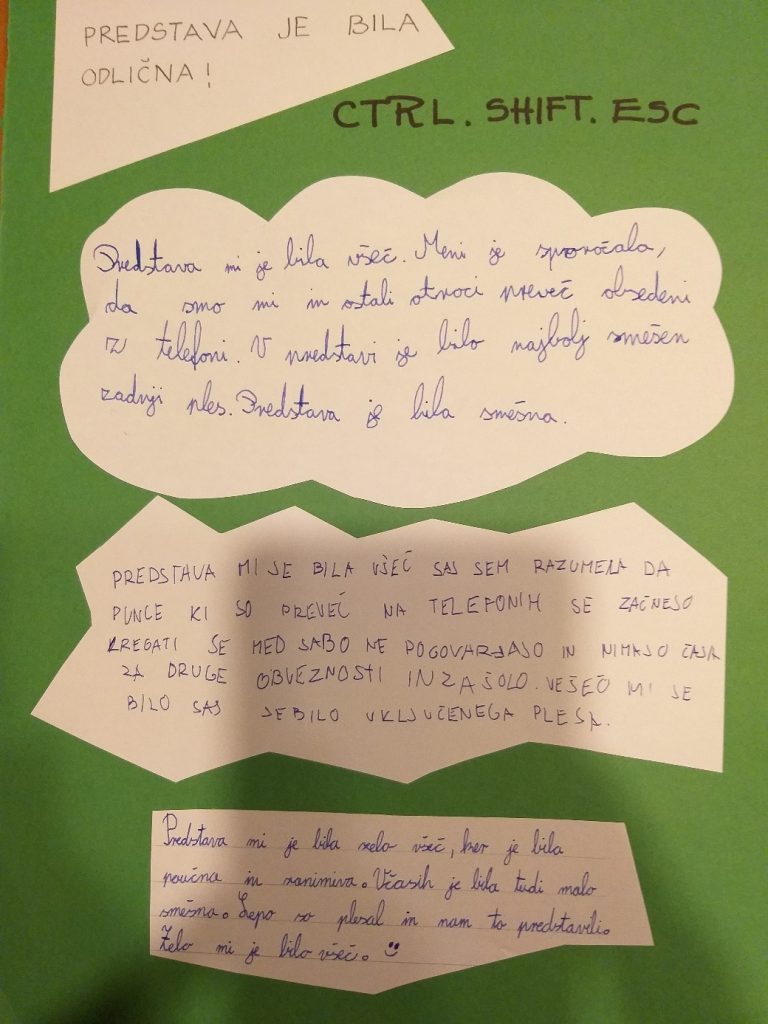 PREDSTAVA JE BILA
ODLIČNA!
CTRL. SHIFT. ESC
Predstava mi je bila všeč. Meni je sporočala,
da smo mi in ostali otroci preveč obsedeni
z telefoni. V predstavi je bilo najbolj smešen
zadnji ples. Predstava je bila smešna.
PREDSTAVA MI JE BILA VŠEČ SAJ SEM RAZUMELA DA
PUNCE KI SO PREVEČ NA TELEFONIH SE ZAČNEJO
KREGATI SE MED SABO NE POGOVARJAJO IN NIMAJO ČASA
ZA DRUGE OBVEZNOSTI IN ZA ŠOLO. VEŠEČ MI JE
BILO SAJ JE BILO VKLJUČENEGA PLESA.
Predstava mi je bila zelo všeč, ker je bila
poučna in zanimiva. Včasih je bila tudi malo
smešna. Lepo so plesal in nam to predstavili.
Zelo mi je bilo všeč. ☺